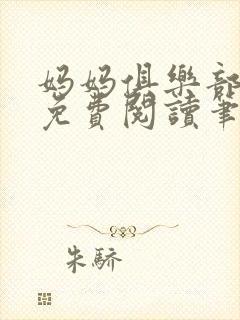 妈妈俱樂部
免費閱讀筆
朱驕